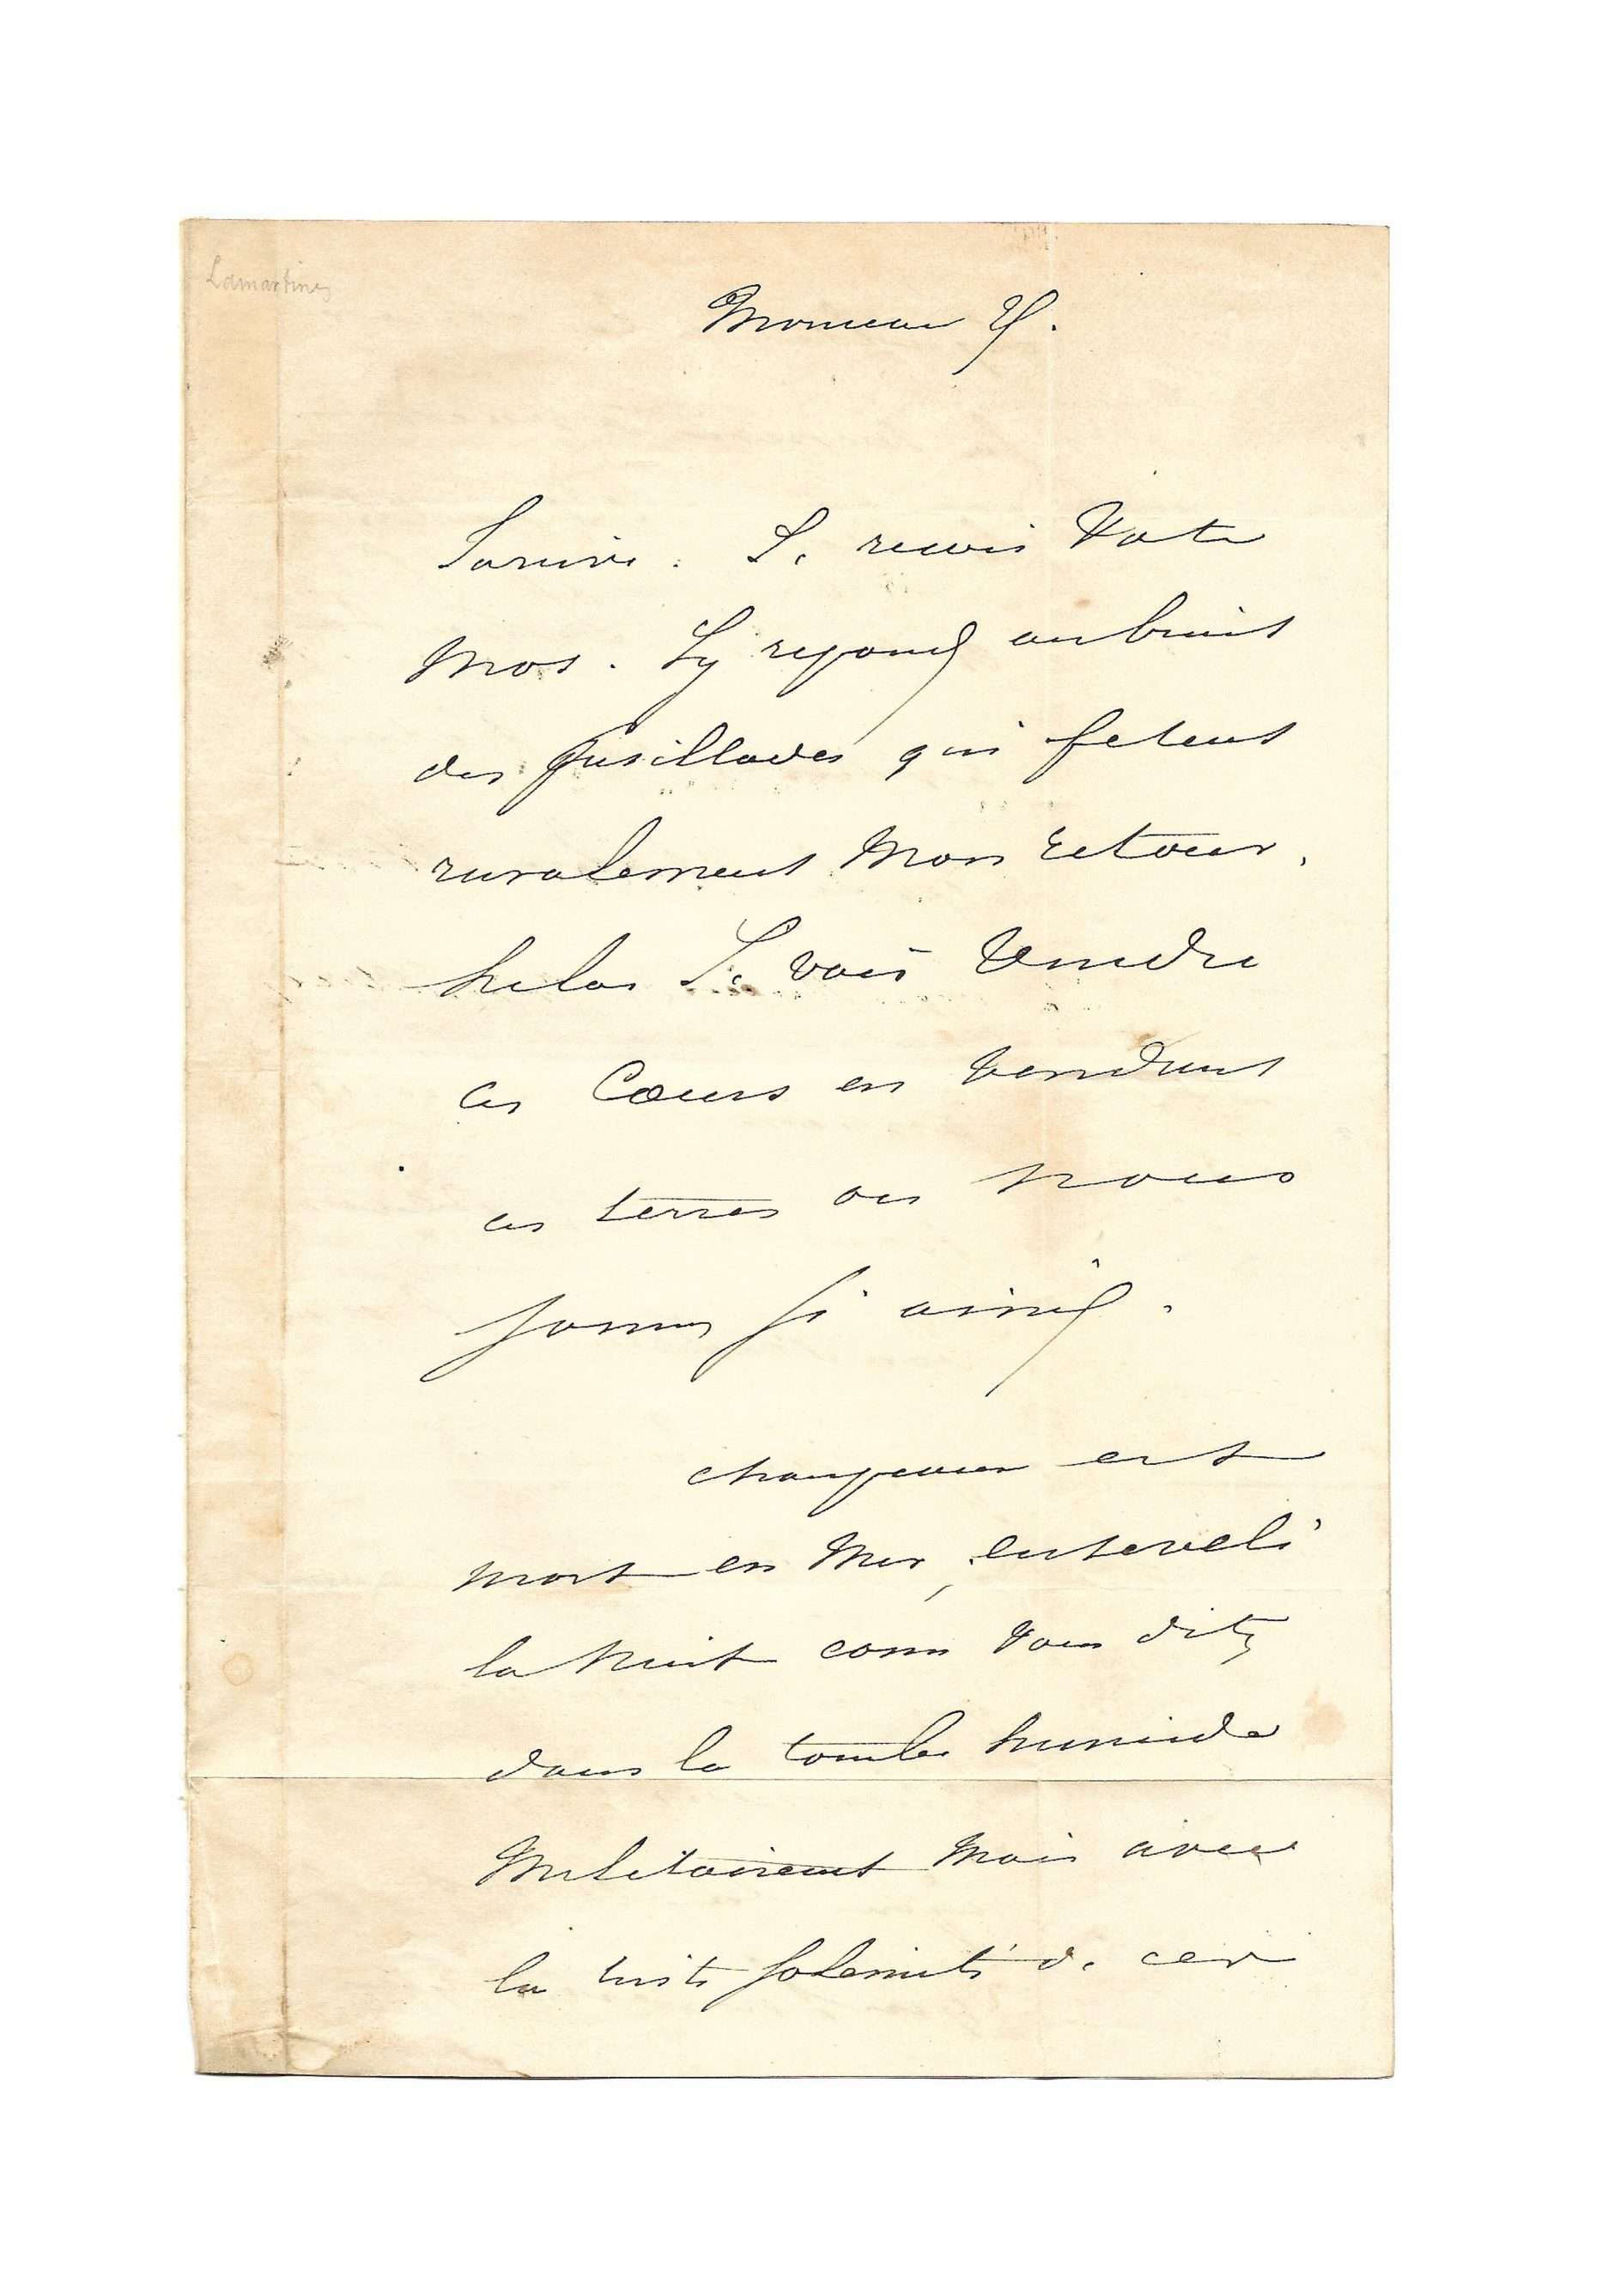 Lamartine
Monceau
J'arrive. Je recois Votre
Mot. J'y repond au bruit
des fusillades qui fetent
ruralement Mon retour,
helas Je vais Vendre
ces Coeurs en vendant
ces terres ou nous
sommes si aimés.
est
mort en Mer, enseveli
la Nuit come Vous dites
dans la tombe humide
Militairement Mais avec
la triste solemnité de ces